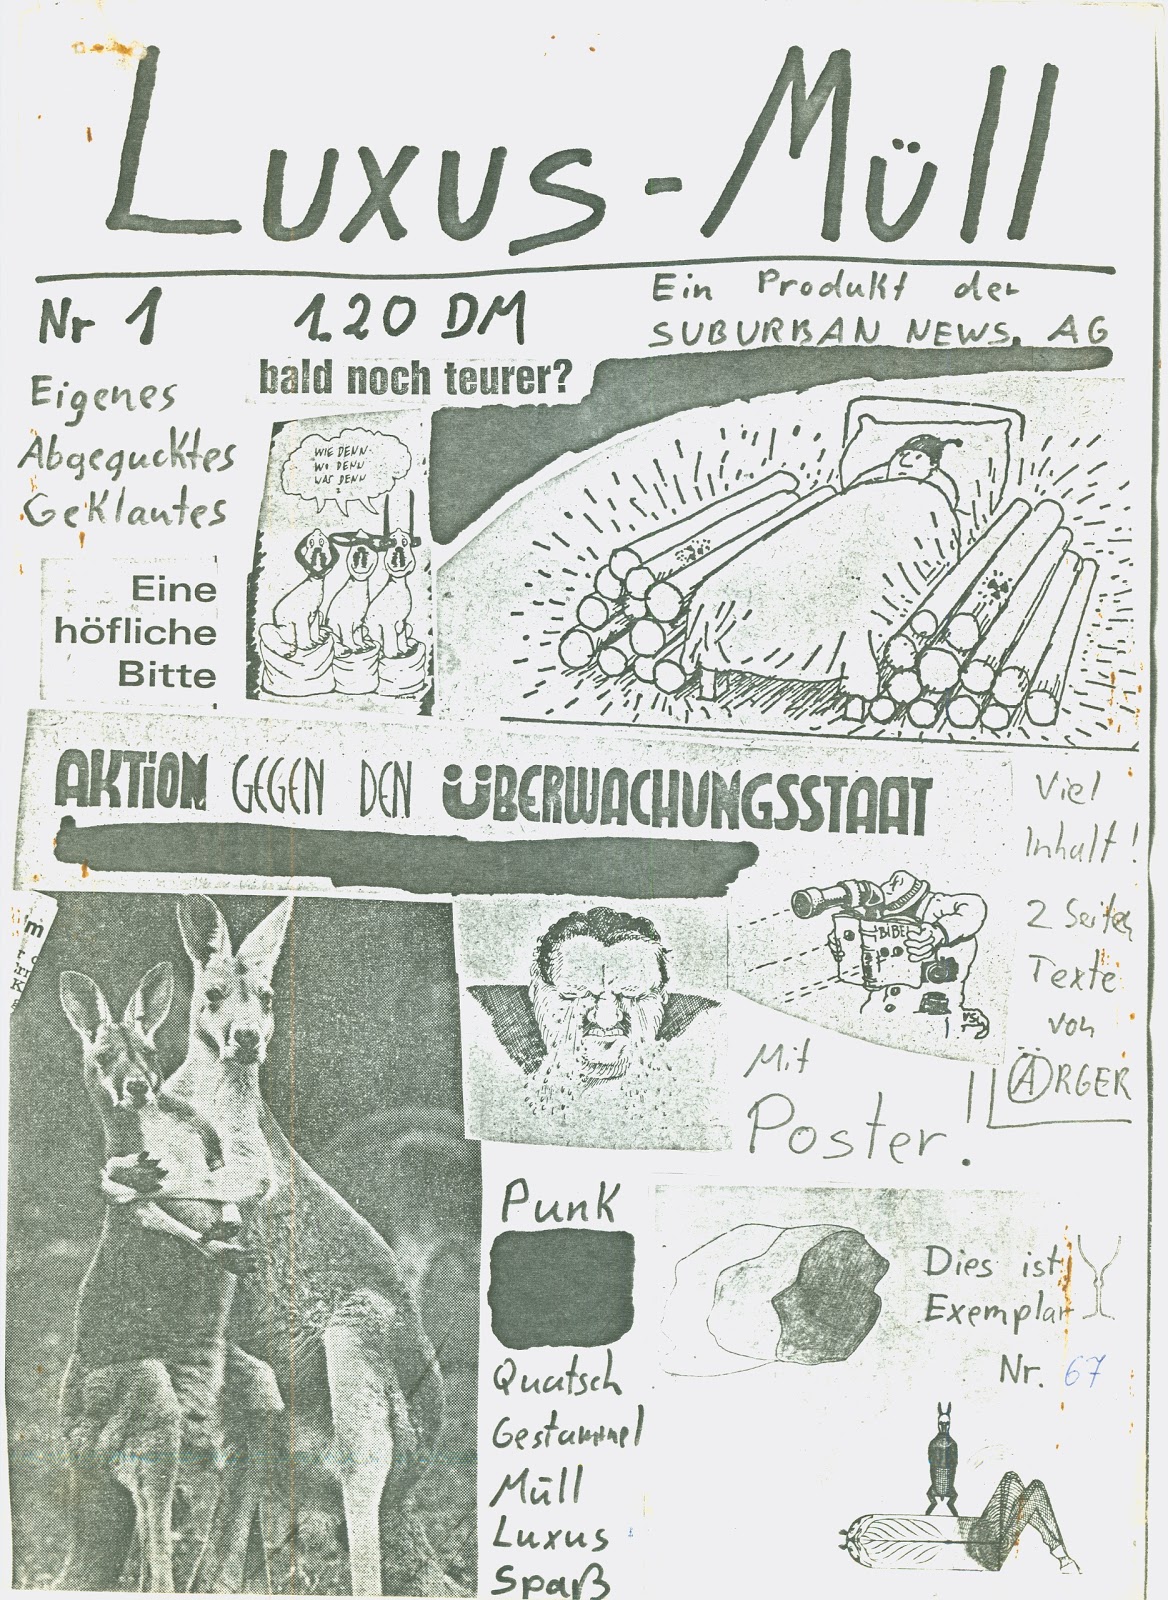 Luxus-Müll
Nr 1
1.20 DM
Ein Produkt der
SUBURBAN NEWS. AG
bald noch teurer?
Eigenes
Abgegucktes
Geklautes
WIE DENN
WO DENN
WAS DENN
?
Eine
höfliche
Bitte
AKTiON GEGEN DEN ÜBERWACHUNGSSTAAT
Viel
Inhalt!
2 Seiten
Texte
von
ÄRGER
BIBEL
Mit
Poster!
Punk
Quatsch
Gestammel
Müll
Luxus
Spaß
Dies ist
Exemplar
Nr. 67